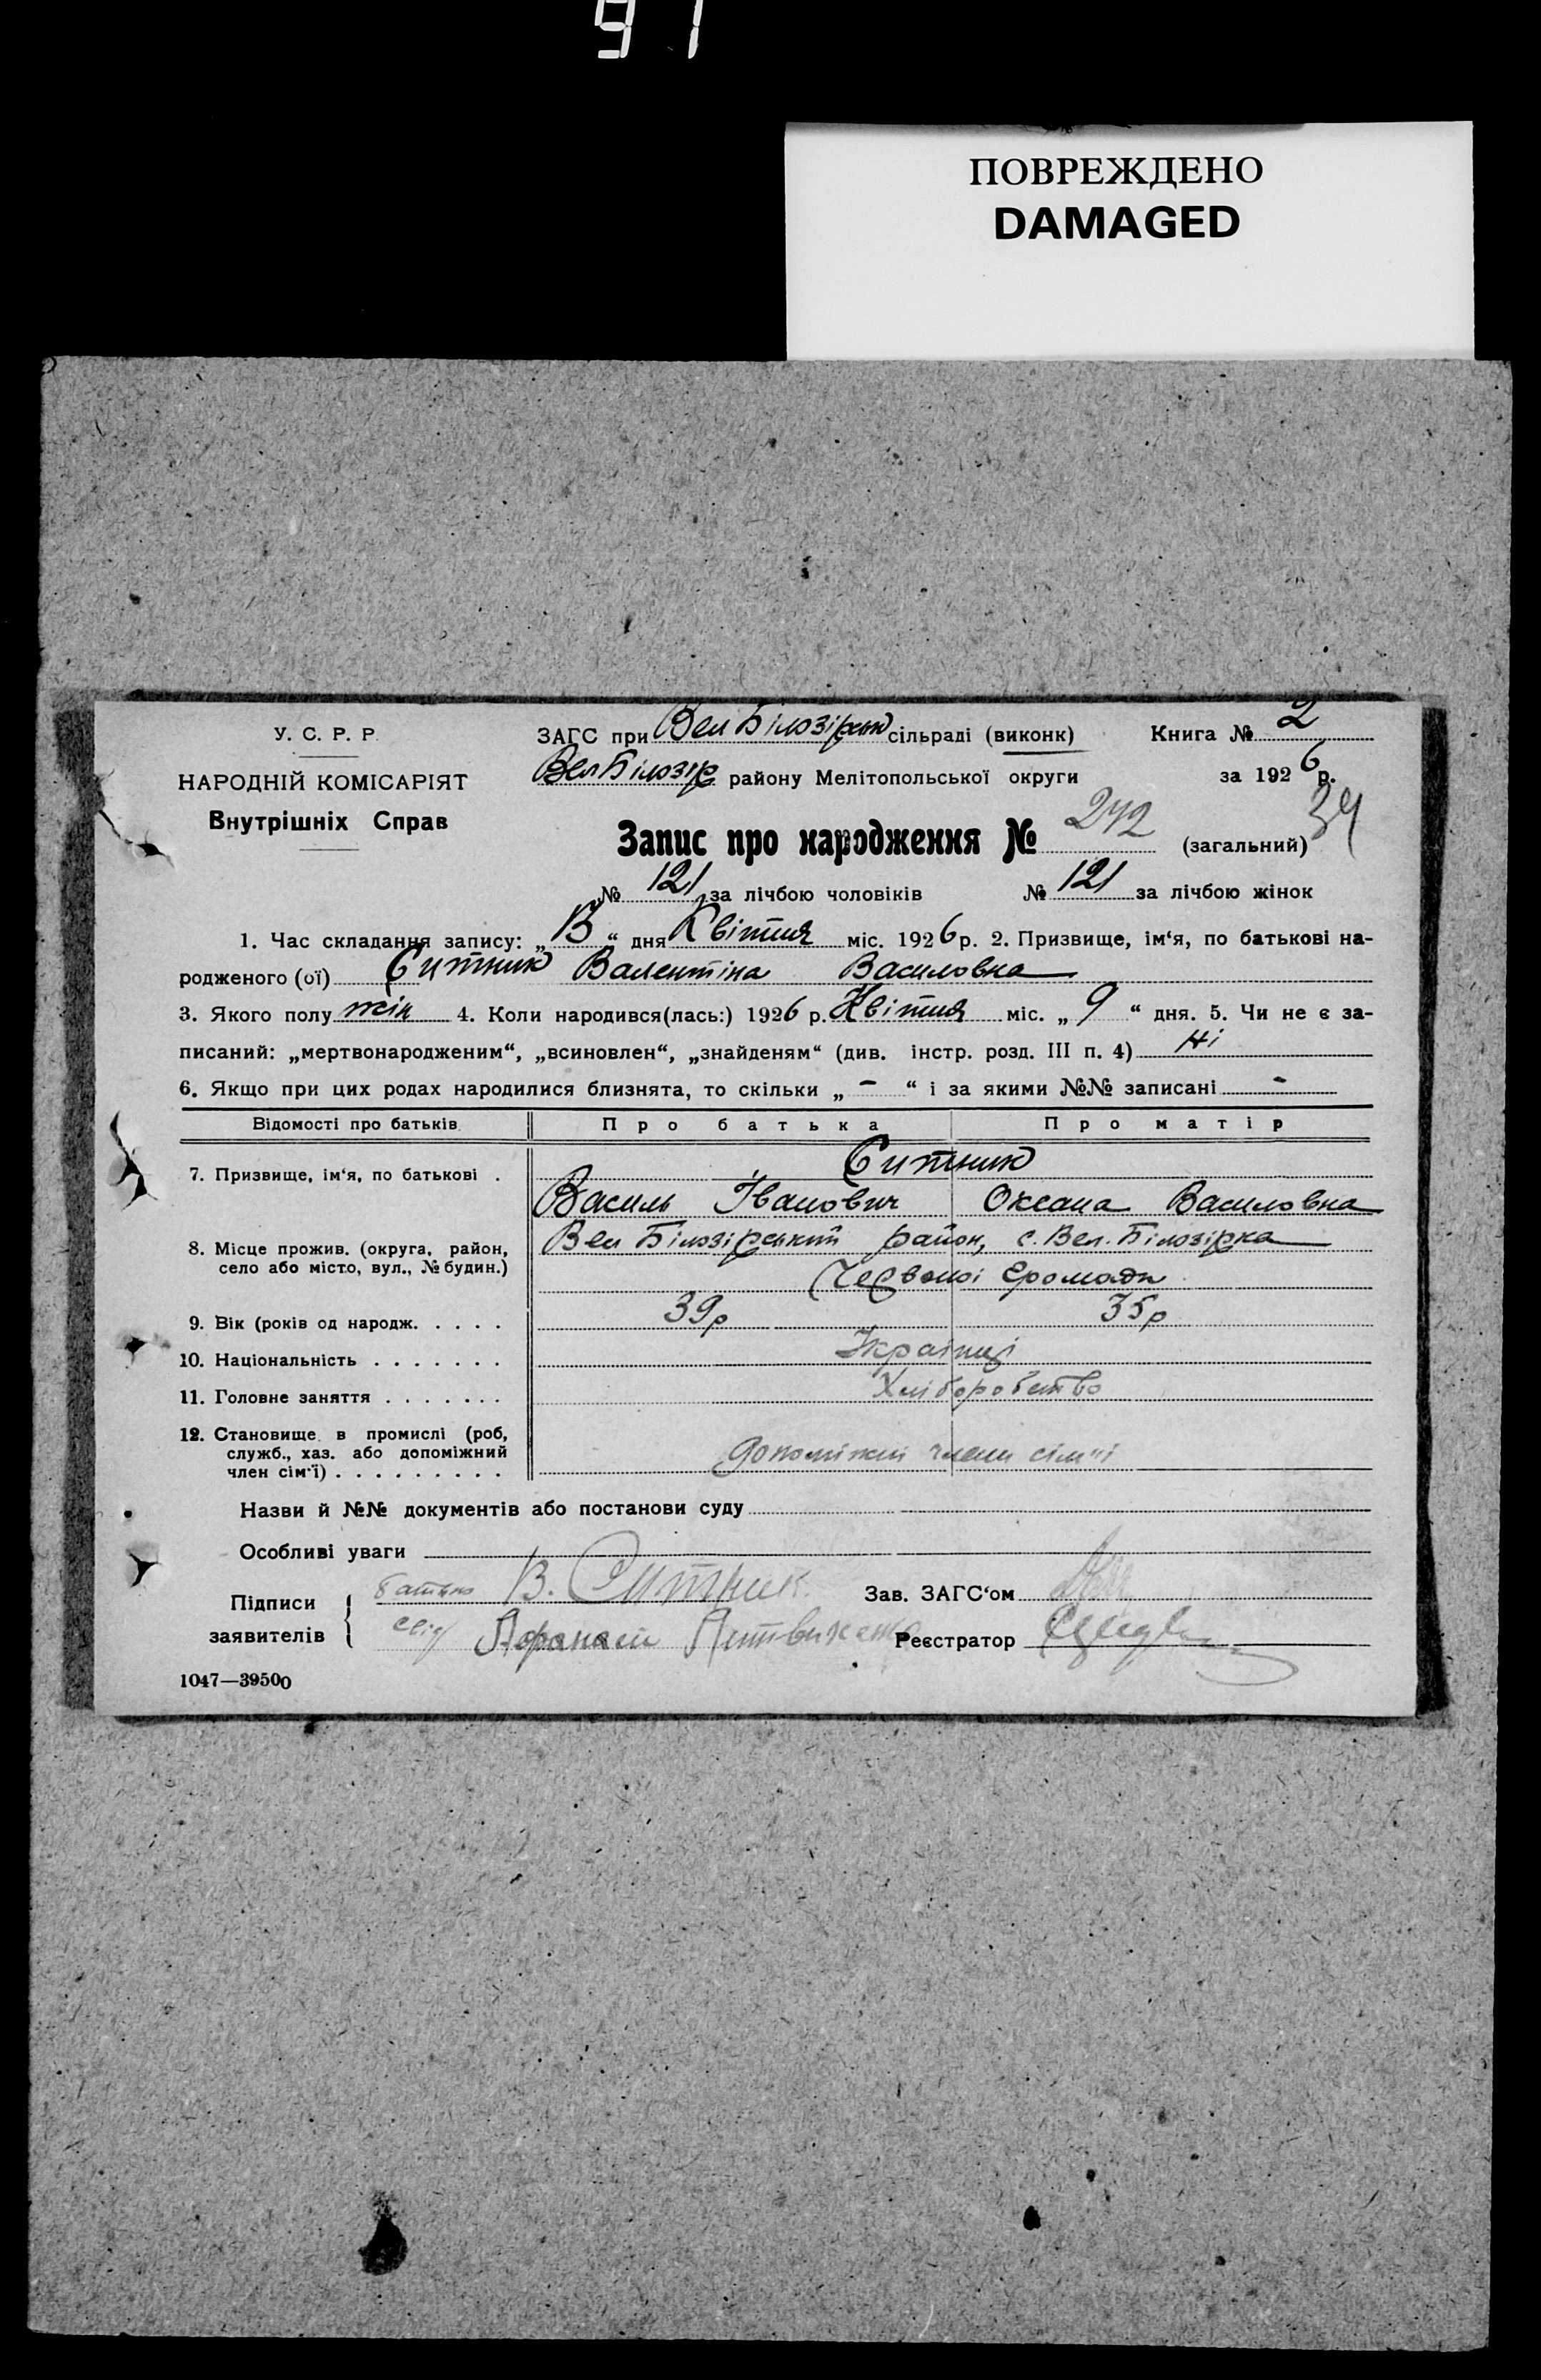 91
ПОВРЕЖДЕНО
DAMAGED
У. С. Р. Р.
НАРОДНІЙ КОМІСАРІЯТ
Внутрішніх Справ
ЗАГС при Вел Білозірськ сільраді (виконк) Книга № 2
Вел Білозір району Мелітопольської округи за 1926 р.
34
Запис про народження № 242 (загальний)
№ 121 за лічбою чоловіків № 121 за лічбою жінок
1. Час складання запису: „13“ дня Квітня міс. 1926 р. 2. Призвище, ім‘я, по батькові на-
родженого (ої) Ситник Валентіна Василовна
3. Якого полу жін 4. Коли народився(лась:) 1926 р. Квітня міс. „9“ дня. 5. Чи не є за-
писаний: „мертвонародженим“, „всиновлен“, „знайденям“ (див. інстр. розд. III п. 4) Ні
6. Якщо при цих родах народилися близнята, то скільки „-“ і за якими №№ записані -
Відомості про батьків Про батька Про матір
7. Призвище, ім‘я, по батькові . Ситник
Василь Іванович Оксана Василовна
8. Місце прожив. (округа, район, село або місто, вул., № будин.) Вел Білозірський район, с. Вел. Білозірка
Червоної Громади
9. Вік (років од народж. . . . . 39р 35р
10. Національність . . . . . . . Українці
11. Головне заняття . . . . . . . Хліборобство
12. Становище в промислі (роб,
служб., хаз. або допоміжний
член сім‘ї) . . . . . . . . . допоміжні члени сім'ї
Назви й №№ документів або постанови суду
Особливі уваги
Підписи заявителів батько В. Ситник Зав. ЗАГС‘ом
свід Афанасій Реєстратор
1047—39500